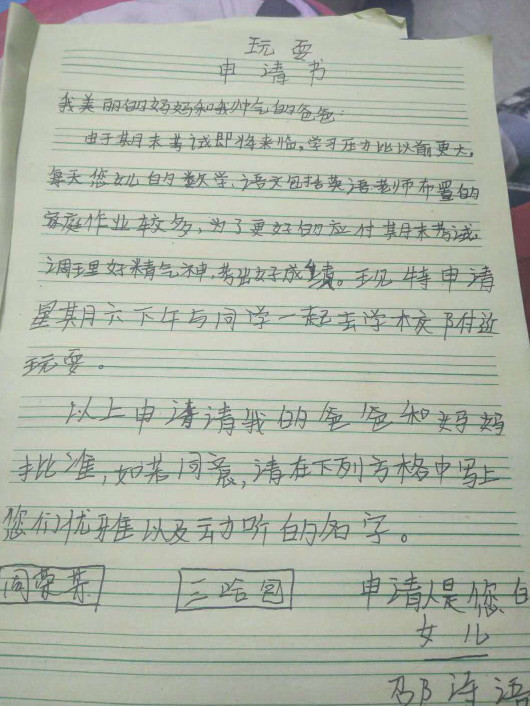 玩耍
申请书
我美丽的妈妈和我帅气的爸爸：
由于期末考试即将来临，学习压力比以前更大，
每天您女儿的数学、语文包括英语老师布置的
家庭作业较多，为了更好的应付期末考试
调理好精气神，考出好成绩。现特申请
星期六下午与同学一起去学校附近
玩耍。
以上申请请我的爸爸和妈妈
批准，如若同意，请在下列方格中写上
您们优雅以及动听的名字。
三哈包 申请人是您
女儿
邵诗语